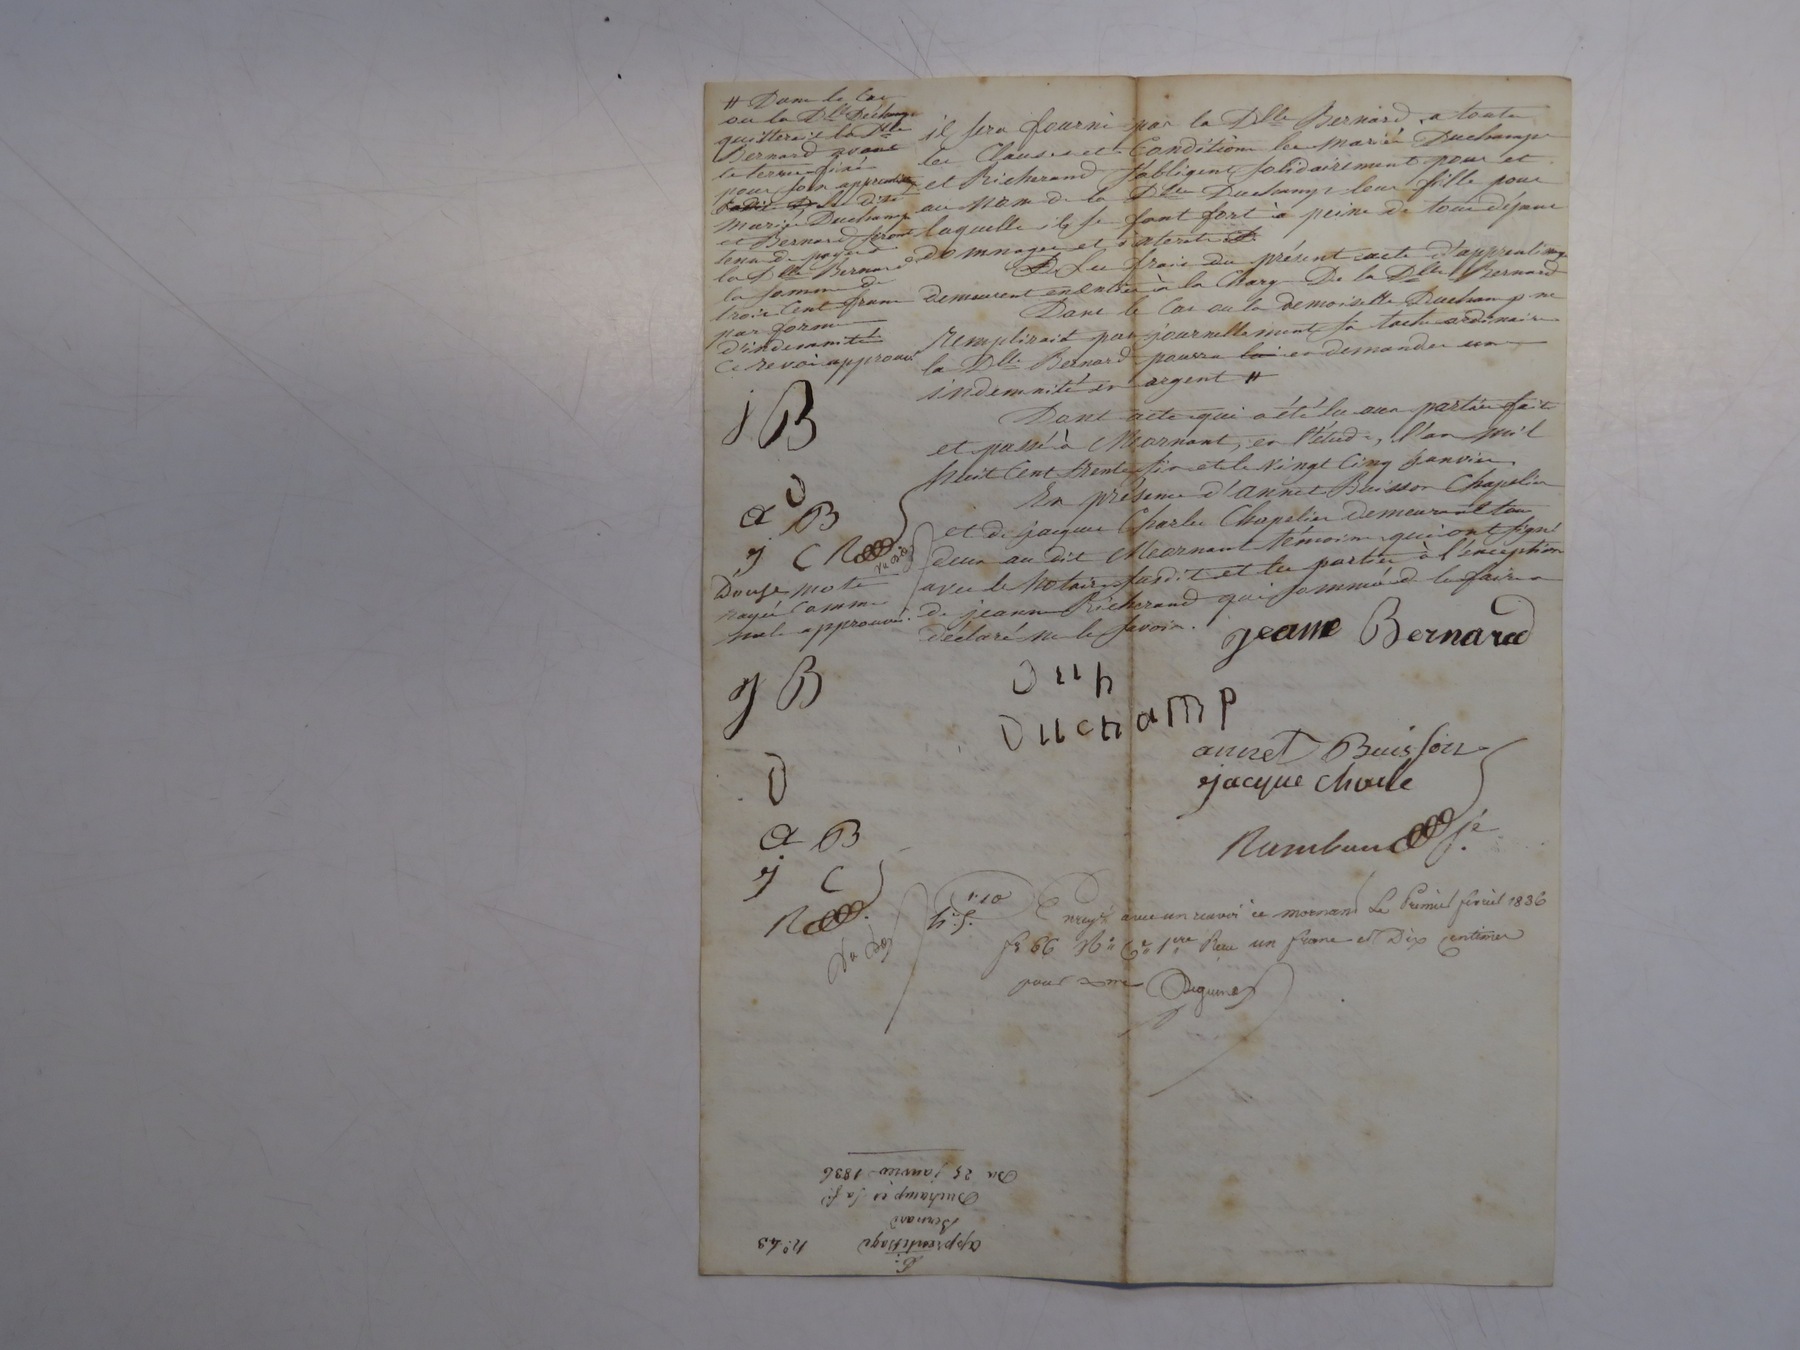 # Dans le Cas
ou la Dlle Duchamp
quitterait la Dlle
Bernard avant
le terme fixé
pour son apprentissage
les dits
Mariés Duchamp
et Bernard seront
tenus de payer à
la Dlle Bernard
la somme de
trois Cent francs
par forme
d'indemnité
Ce renvoi approuvé
j B
D
a B
j C R
Douze mots
rayés Comme
nuls approuvés.
j B
D
a B
j C
R
il sera fourni par la Dlle Bernard, a toutes
les Clauses et Conditions les Mariés Duchamp
et Richerand s'obligent solidairement pour et
au Nom de la Dlle Duchamp leur fille pour
laquelle ils se font fort à peine de tous dépens
dommages et interets.
Les frais du présent acte d'apprentissage
demeurent en Entier à la Charge De la Dlle Bernard
Dans le Cas ou la demoiselle Duchamp ne
Remplirait pas journellement sa tache ordinaire
la Dlle Bernard pourra lui en demander une
indemnité en argent #
Dont acte qui a été lu aux parties fait
et passé à Mornant, en l'étude, l'an Mil
huit Cent trente six et le vingt Cinq janvier
En présence d'annet Buisson Chapelier
et de jacques Charles Chapelier demeurant tous
deux au dit Mornant témoins qui ont signé
avec le Notaire susdit et les parties à l'exception
de jeanne Richerand qui sommée de le faire a
déclaré ne le savoir.
jeanne Bernard
Duh
Duchamp
annet Buisson
jacque charle
Rambaud
1.10
h. s.
Enregré avec un renvoi à mornant Le Premier février 1836
fo 66 Ro Ce 1ere Reçu un franc et Dix Centimes
pour dixme
No 43
apprentissage
Bernard
Duchamp et sa f.
Du 25 janvier 1836